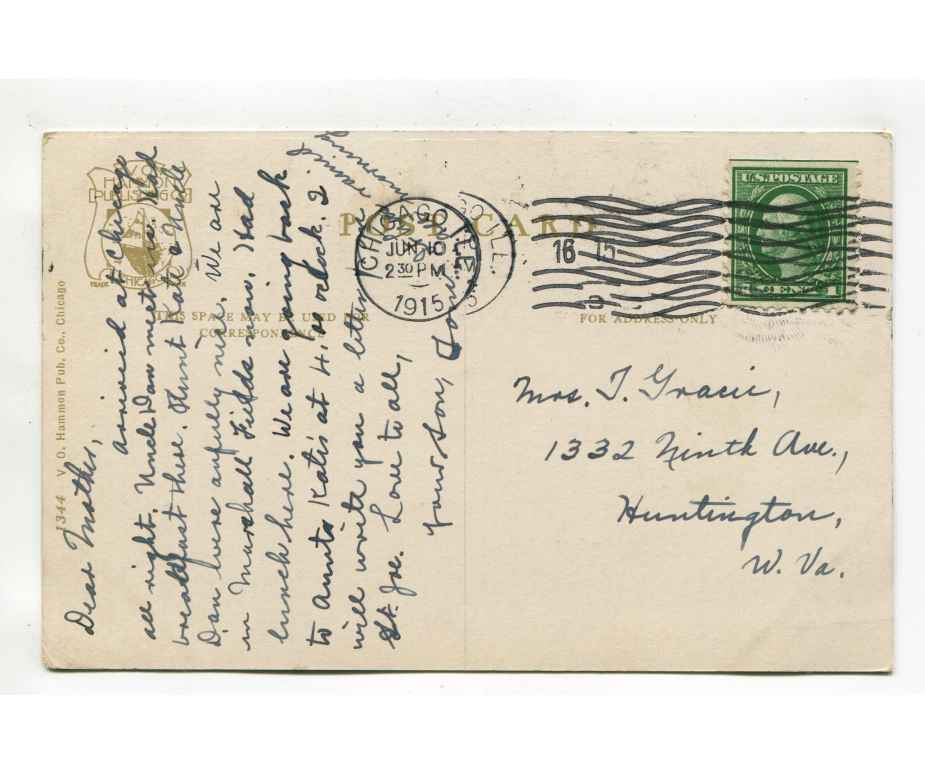 HAMMON
PUBLISHING CO
TRADE CHICAGO MARK
POST CARD
THIS SPACE MAY BE USED FOR
CORRESPONDENCE
FOR ADDRESS ONLY
1344 V. O. Hammon Pub. Co., Chicago
CHICAGO, ILL.
JUN 10
2 30 PM
1915
U.S. POSTAGE
1 CENT 1
Dear Mother,
arrived at Chicago
all right. Uncle Dan met us. Had
breakfast there. Aunt Kate & Uncle
Dan were awfully nice. We are
in Marshall Fields now. Had
lunch here. We are going back
to Aunt Kate's at 4:30 o'clock. I
will write you a letter
St. Joe. Love to all,
Your son,
Mrs. T. Gracie,
1332 Ninth Ave.,
Huntington,
W. Va.